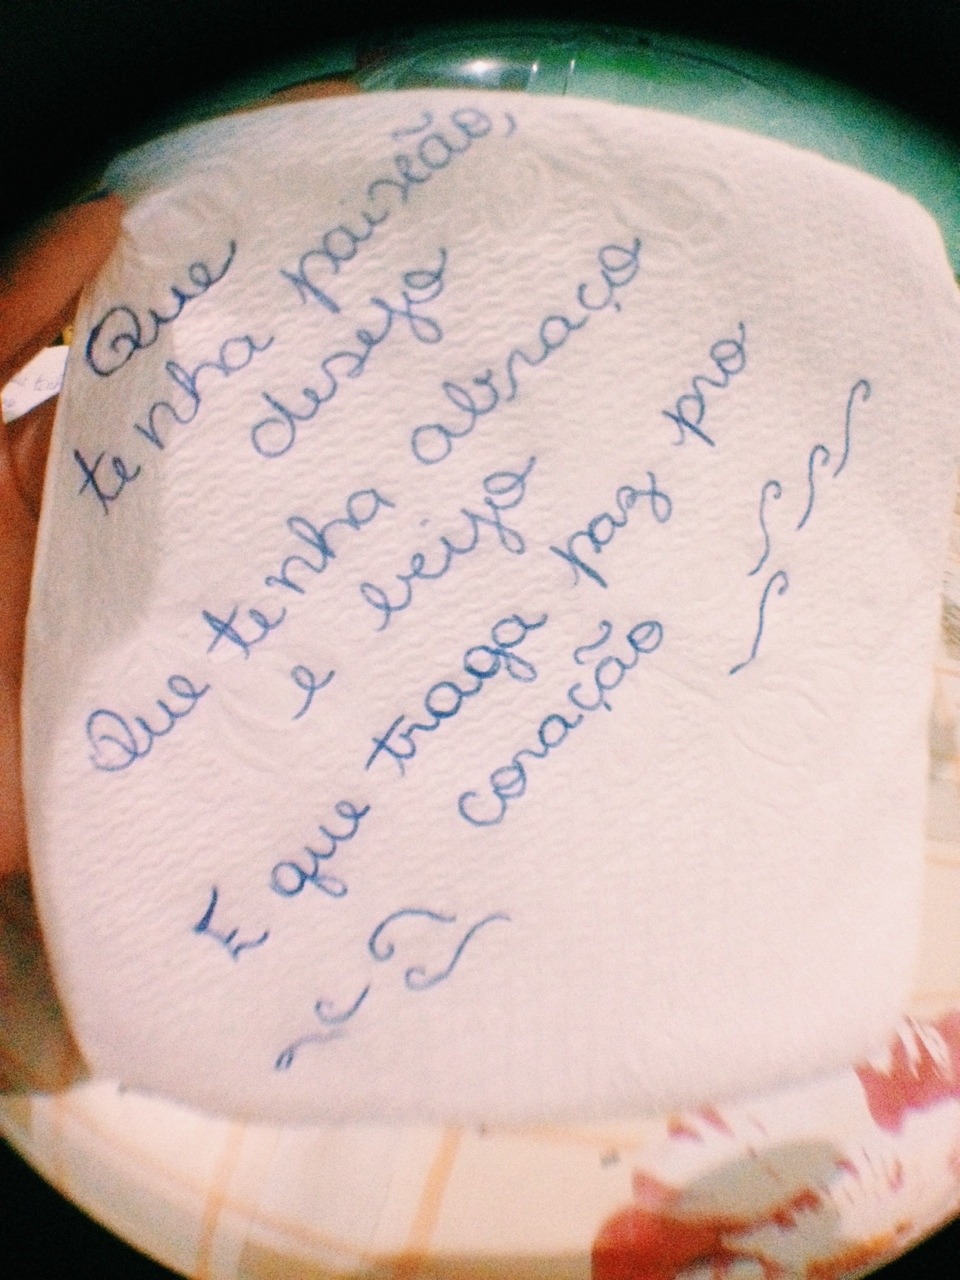 Que
tenha paixão,
desejo
Que tenha abraço
e beijo
E que traga paz pro
coração